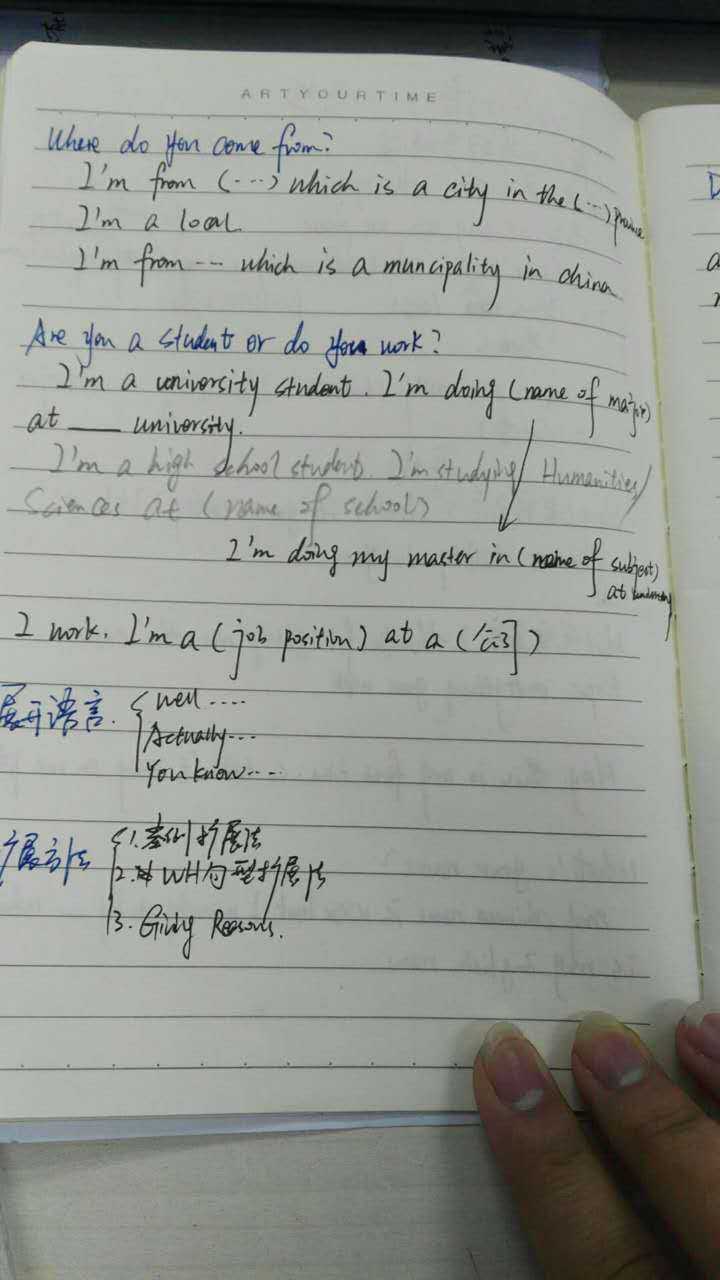 ARTYOURTIME
Where do you come from?
I'm from (...) which is a city in the (...)
I'm a local
I'm from -- which is a muncipality in china
Are you a student or do you work?
I'm a university student. I'm doing (name of major)
at ___ university.
I'm a high school student. I'm studying Humanities/
Sciences at (name of school)
I'm doing my master in (name of subject)
at
I work. I'm a (job position) at a (公司)
展开语言.
well ....
Actually...
You know....
扩展方法
1. 举例扩展法
2. WH句型扩展法
3. Giving Reasons.